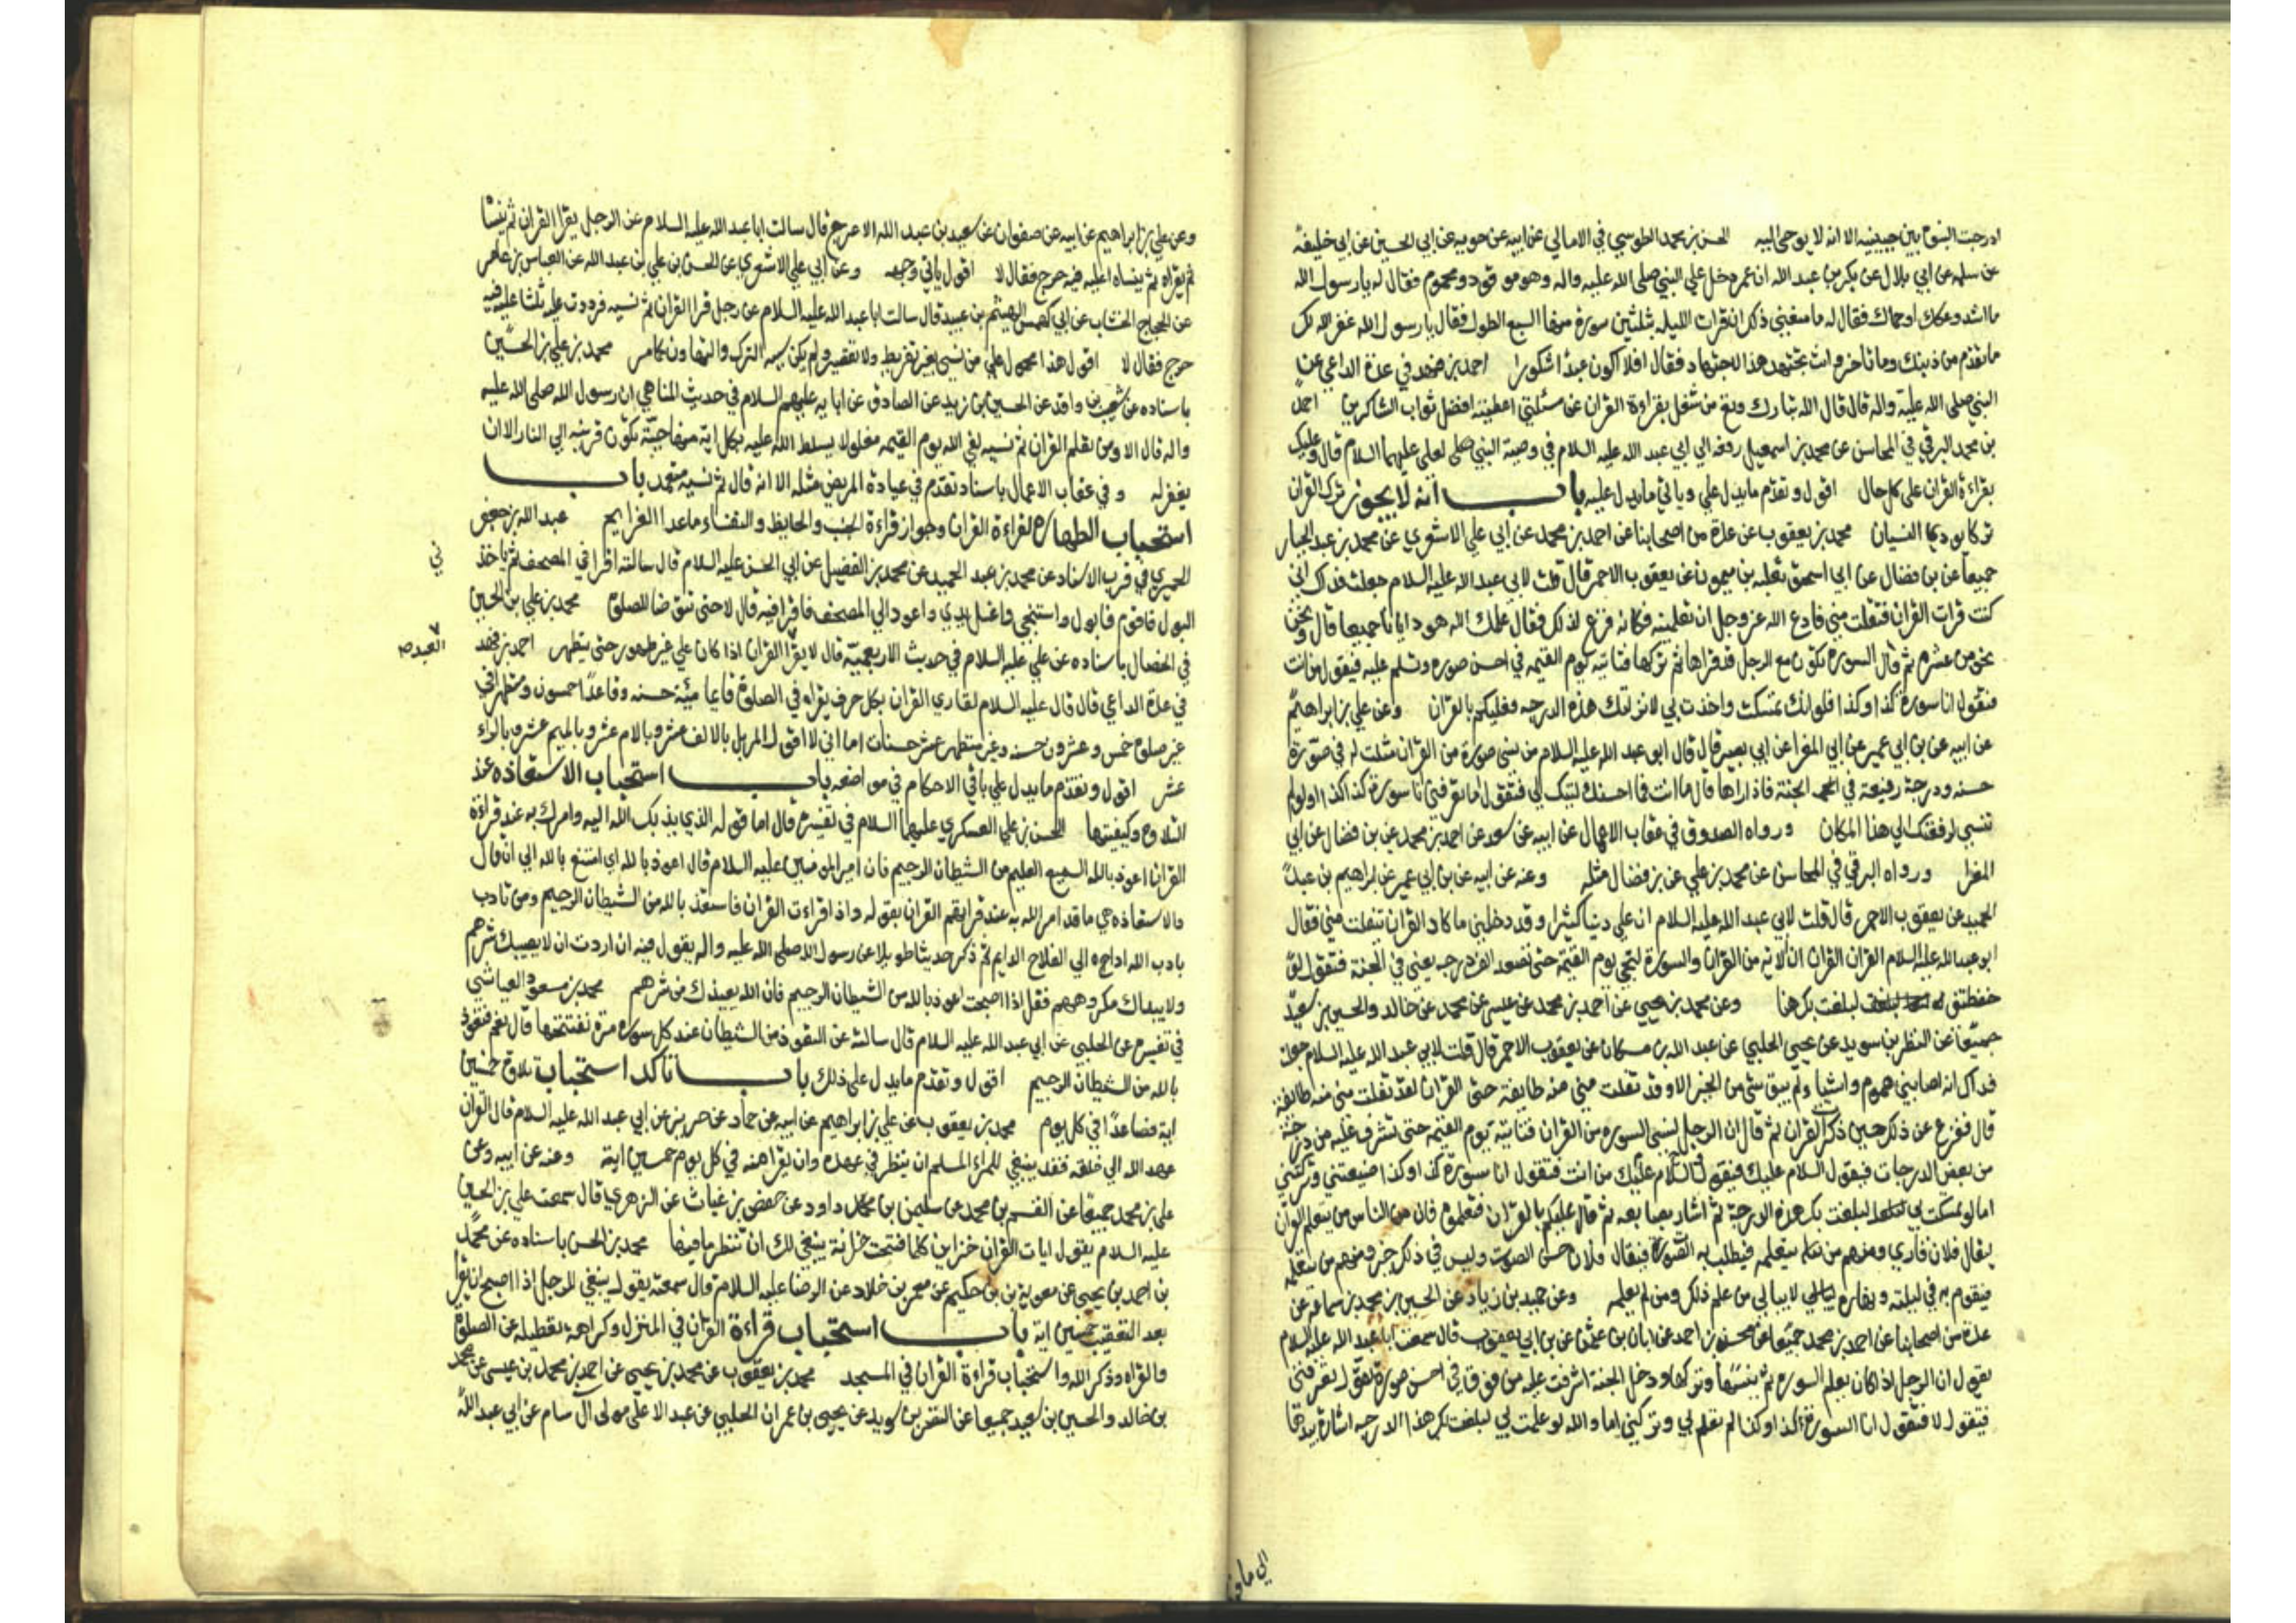 ادرجت النبوة بين جنبيه الا انه لا يوحى اليه الحسن بن محمد الطوسي في الامالي عن ابيه عن حمويه عن ابي الحسين عن ابي خليفة
عن سلم عن ابي بلال عن بكر بن عبد الله ان عمر دخل على النبي صلى الله عليه واله وهو موقوذ ومحموم فقال له يا رسول الله
ما اشد وعكك او حماك فقال له ما منعني ذلك ان قرات الليلة ثلثين سورة منها السبع الطول فقال يا رسول الله غفر الله لك
ما تقدم من ذنبك وما تاخر وانت تجتهد هذا الاجتهاد فقال افلا اكون عبدا شكورا احمد بن فهد في عدة الداعي عن
النبي صلى الله عليه واله قال قال الله تبارك وتع من شغل بقراءة القران عن مسئلتي اعطيته افضل ثواب الشاكرين احمد
بن محمد البرقي في المحاسن عن محمد بن اسمعيل رفعه الى ابي عبد الله عليه السلام في وصية النبي صلى لعلي عليهما السلام قال وعليك
بقراءة القران على كل حال اقول وتقدم ما يدل على ويأتي ما يدل عليه باب انه لا يجوز ترك القران
تركا يودي الى النسيان محمد بن يعقوب عن عدة من اصحابنا عن احمد بن محمد عن ابي علي الاشعري عن محمد بن عبد الجبار
جميعا عن بن فضال عن ابي اسحق ثعلبه بن ميمون عن يعقوب الاحمر قال قلت لابي عبد الله عليه السلام جعلت فداك اني
كنت قرات القران فتفلت مني فادع الله عز وجل ان تعلمينه فكانه فزع لذلك فقال علمك الله هو وايانا جميعا قال ونحن
نحو من عشرة ثم قال السورة تكون مع الرجل قد قراها ثم تركها فتاتيه يوم القيمه في احسن صوره وتسلم عليه فيقول من انت
فتقول انا سورة كذا وكذا فلو انك تمسكت واخذت بي لانزلتك هذه الدرجه فعليكم بالقران وعن علي بن ابراهيم
عن ابيه عن بن ابي عمير عن ابي المغرا عن ابي بصير قال قال ابو عبد الله عليه السلام من نسي سورة من القران مثلت له في صورة
حسنه ودرجة رفيعة في الجنة فاذا راها قال ما انت فما احسنك ليتك لي فتقول اما تعرفني انا سورة كذا كذا ولو لم
تنسي لرفعتك الى هذا المكان ورواه الصدوق في عقاب الاعمال عن ابيه عن سعد عن احمد بن محمد عن بن فضال عن ابي
المغرا ورواه البرقي في المحاسن عن محمد بن علي عن بن فضال مثله وعنه عن ابيه عن بن ابي عمير عن ابراهيم بن عبد
الحميد عن يعقوب الاحمر قال قلت لابي عبد الله عليه السلام ان علي دينا كثيرا وقد دخلني ما كاد القران يتفلت مني فقال
ابو عبد الله عليه السلام القران القران ان الاية من القران والسورة لتجي يوم القيمة حتى تصعد الف درجه يعني في الجنة فتقول لو
حفظتني لبلغت بك هنا وعن محمد بن يحيى عن احمد بن محمد عن عيسى عن محمد عن خالد والحسين بن سعيد
جميعا عن النظر بن سويد عن يحيى الحلبي عن عبد الله بن مسكان عن يعقوب الاحمر قال قلت لابي عبد الله عليه السلام جعلت
فداك انه اصابني هموم واشيا ولم يبق شي من الخير الا وقد تفلت مني منه طايفة حتى القران لقد تفلت مني منه طائفة
قال ففزع عن ذلك حين ذكرت القران ثم قال ان الرجل لينسى السوره من القران فتاتيه يوم القيمه حتى تشرف عليه من درجة
من بعض الدرجات فيقول السلام عليك فيقول السلام عليك من انت فتقول انا سورة كذا وكذا ضيعتني وتركتني
اما لو تمسكت بي لبلغت بك هذه الدرجة ثم اشار بصابعه ثم قال عليكم بالقران فتعلموه فان من الناس من يتعلم القران
ليقال فلان قاري ومنهم من يتعلمه فيطلب به الصوت فيقال فلان حسن الصوت وليس في ذلك خير ومنهم من يتعلمه
فيقوم به في ليلته ونهاره لا يبالي من علم ذلك ومن لم يعلمه وعن حميد بن زياد عن الحسين بن محمد بن سماعه عن
عدة من اصحابنا عن احمد بن محمد جميعا عن محسن بن احمد عن ابان بن عثمن عن بن ابي يعقوب قال سمعت ابا عبد الله عليه السلام
يقول ان الرجل اذا كان يعلم السوره ثم ينسها وتركها ودخل الجنة اشرفت عليه من فوق في احسن صورة تقول تعرفني
فيقول لا فتقول انا السورة كذا وكذا لم تعلم لي وتركتني اما والله لو علمت لي لبلغت بك هذا الدرجه اشارة بيدها
الى ما فو
وعن علي بن ابراهيم عن ابيه عن صفوان عن سعيد بن عبد الله الاعرج قال سالت ابا عبد الله عليه السلام عن الرجل يقرا القران ثم ينسا
ثم يقراه ثم ينساه اعليه فيه حرج فقال لا اقول ياتي وجهه وعن ابي علي الاشعري عن الحسن بن علي بن عبد الله عن العباس بن عامر
عن الحجاج الخشاب عن ابي كهمس الهيثم بن عبيد قال سالت ابا عبد الله عليه السلام عن رجل قرا القران ثم نسيه فرددت عليه ثلثا عليه فيه
حرج فقال لا اقول هذا محمول على من نسي بغير تفريط ولا تقصير ولم يكن سببه الترك والتهاون كما مر محمد بن علي بن الحسين
باسناده عن شعيب بن واقد عن الحسين بن زيد عن الصادق عن ابايه عليهم السلام في حديث المناهي ان رسول الله صلى الله عليه
واله قال الا ومن تعلم القران ثم نسيه لقي الله يوم القيمه مغلولا يسلط الله عليه بكل اية منها حية تكون قرينه الى النار الا ان
يغفر له وفي عقاب الاعمال باسناد تقدم في عيادة المريض مثله الا انه قال ثم نسيه متعمد باب
استحباب الطهارة لقراءة القران وجواز قراءة الجنب والحايض والنفساء ماعدا العزايم عبد الله بن جعفر
الحميري في قرب الاسناد عن محمد بن عبد الحميد عن محمد بن الفضيل عن ابي الحسن عليه السلام قال سالته اقرا في المصحف ثم ياخذني
البول فاقوم فابول واستنجي واغسل يدي واعود الى المصحف فاقرا فيه قال لا حتى تتوضا للصلوة محمد بن علي بن الحسين
في الخصال باسناده عن علي عليه السلام في حديث الاربعميه قال لا يقرا العبد القران اذا كان على غير طهور حتى يتطهر احمد بن فهد
في عدة الداعي قال قال عليه السلام لقاري القران بكل حرف يقراه في الصلوة قايما مئة حسنه وقاعدا خمسون ومتطهرا في
غير صلوة خمس وعشرون حسنه وغير متطهر عشر حسنات اما اني لا اقول المر بل بالالف عشر وبالام عشر وبالميم عشر وبالراء
عشر اقول وتقدم ما يدل على باقي الاحكام في مواضعه باب استحباب الاستعاذه عند
التلاوة وكيفيتها الحسن بن علي العسكري عليهما السلام في تفسيره قال اما قوله الذي يذبك الله اليه وامرك به عند قراءة
القران اعوذ بالله السميع العليم من الشيطان الرجيم فان امير المومنين عليه السلام قال اعوذ بالله اي امتنع بالله الى ان قال
والاستعاذه هي ما قد امر الله به عند قراتهم القران بقوله واذا قراءت القران فاستعذ بالله من الشيطان الرجيم ومن تادب
بادب الله اداه الى الفلاح الدايم ثم ذكر حديثا طويلا عن رسول الله صلى الله عليه واله يقول فيه ان اردت ان لا يصيبك شرهم
ولا يبداك مكروههم فقل اذا اصبحت اعوذ بالله من الشيطان الرجيم فان الله يعيذك من شرهم محمد بن مسعود العياشي
في تفسيره عن الحلبي عن ابي عبد الله عليه السلام قال سالته عن التعوذ من الشيطان عند كل سوره مرة نفتتحها قال نعم فتعوذ
بالله من الشيطان الرجيم اقول وتقدم ما يدل على ذلك باب تاكد استحباب تلاوة خمسين
اية فصاعدا في كل يوم محمد بن يعقوب عن علي بن ابراهيم عن ابيه عن حماد عن حريز عن ابي عبد الله عليه السلام قال القران
عهد الله الى خلقه فقد ينبغي للمراء المسلم ان ينظر في عهده وان يقرا منه في كل يوم خمسين اية وعنه عن ابيه وعن
علي بن محمد جميعا عن القسم بن محمد عن سليمن بن داود عن حفص بن غياث عن الزهري قال سمعت علي بن الحسين
عليه السلام يقول ايات القران خزاين كلما فتحت خزانة ينبغي لك ان تنظر ما فيها محمد بن الحسن باسناده عن محمد
بن احمد بن يحيى عن معوية بن حكيم عن معمر بن خلاد عن الرضا عليه السلام قال سمعته يقول ينبغي للرجل اذا اصبح ان يقرا
بعد التعقيب خمسين اية باب استحباب قراءة القران في المنزل وكراهة تعطيله عن الصلوة
والقراه وذكر الله واستحباب قراءة القران في المسجد محمد بن يعقوب عن محمد بن يحيى عن احمد بن محمد بن عيسى عن محمد
بن خالد والحسين بن سعيد جميعا عن النضر بن سويد عن يحيى بن عمران الحلبي عن عبد الاعلى مولى ال سام عن ابي عبد الله
ني
العبد صح